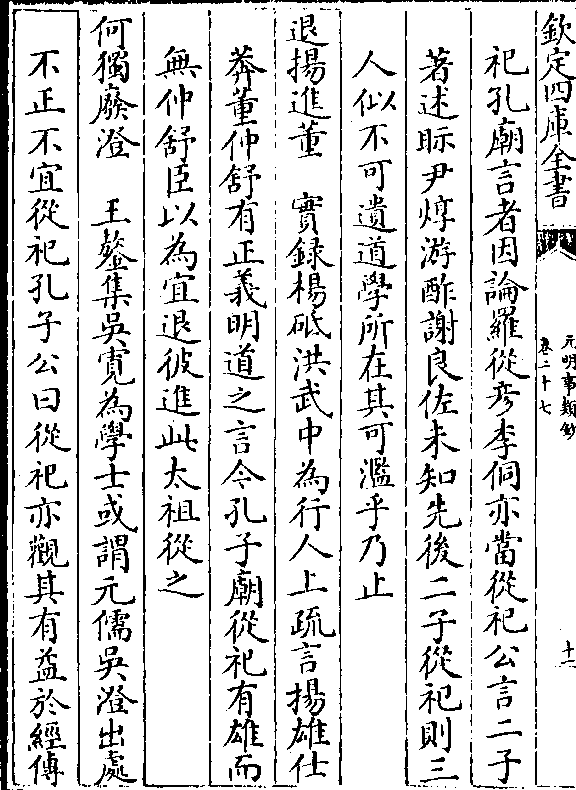 欽定四庫全書
元明事類鈔
卷二十七
十一
祀孔廟言者因論羅從彦李侗亦當從祀公言二子
著述眎尹焞游酢謝良佐未知先後二子從祀則三
人似不可遺道學所在其可濫乎乃止
退揚進董 實録楊砥洪武中為行人上疏言揚雄仕
莽董仲舒有正義明道之言今孔子廟從祀有雄而
無仲舒臣以為宜退彼進此太祖從之
何獨廢澄 王鏊集吳寛為學士或謂元儒吳澄出處
不正不宜從祀孔子公曰從祀亦觀其有益於經傳